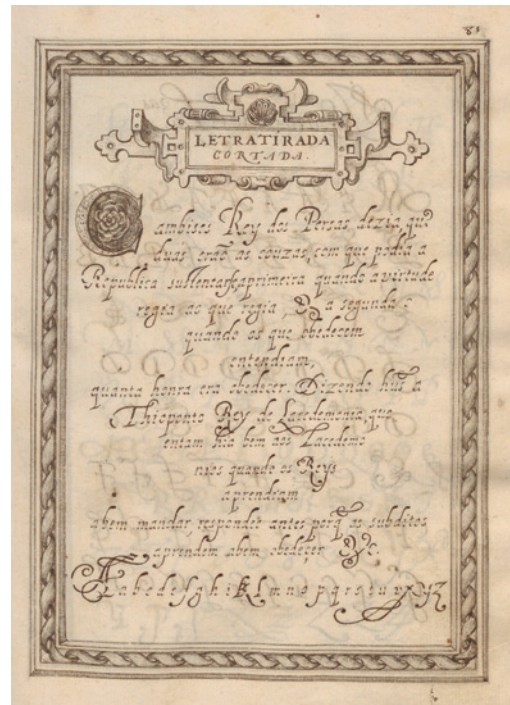 81
LETRATIRADA
CORTADA.
Cambises Rey dos Persas dezia que
duas erão as couzas, com que podia a
Republica sustentarse, aprimeira quando avirtude
regia ao que regia, & a segunda
quando os que obedecem
entendiam,
quanta honra era obedecer. Dizendo hũ a
Thioponto Rey de Lacedemonia, que
entam hia bem aos Lacedemo
nios quando os Reys
aprendiam
abem mandar, respondeo antes porq̃ os subditos
aprendem abem obedeçer &c.
A a b c d e f g h i k l m n o p q r s t u v x y z